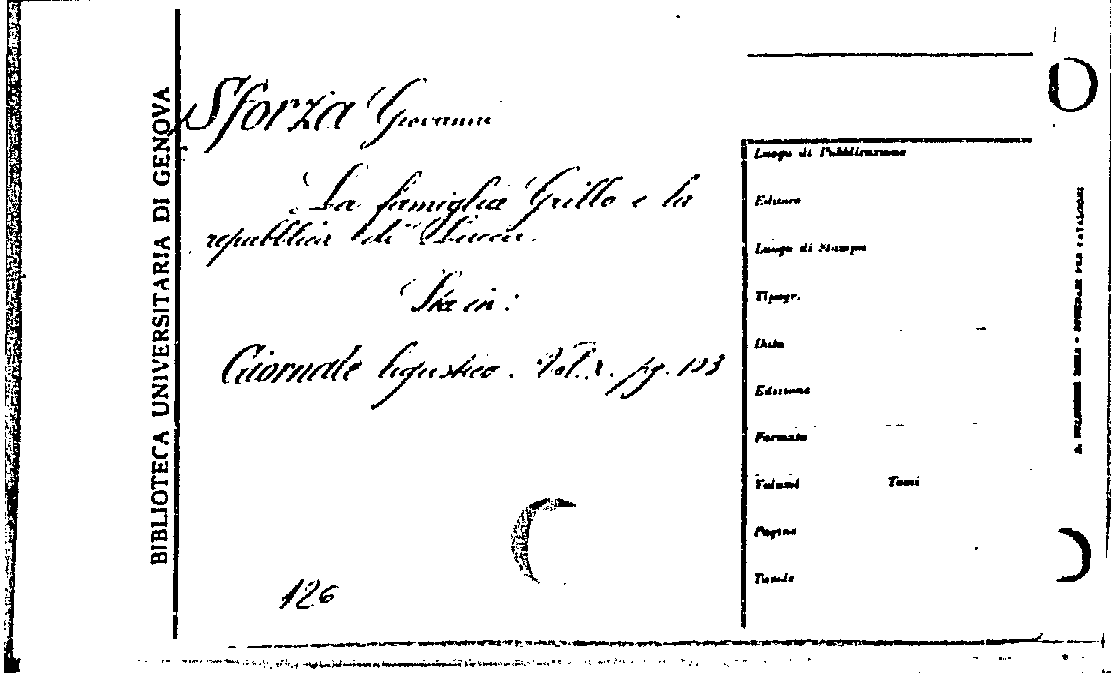 BIBLIOTECA UNIVERSITARIA DI GENOVA
Sforza Giovanni
La famiglia Grillo e la
repubblica di Lucca.
Sta in:
Giornale ligustico. Vol. X. pg. 193
126
Luogo di Pubblicazione
Editore
Luogo di Stampa
Tipogr.
Data
Edizione
Formato
Volumi Tomi
Pagine
Tavole
PER CATALOGHI